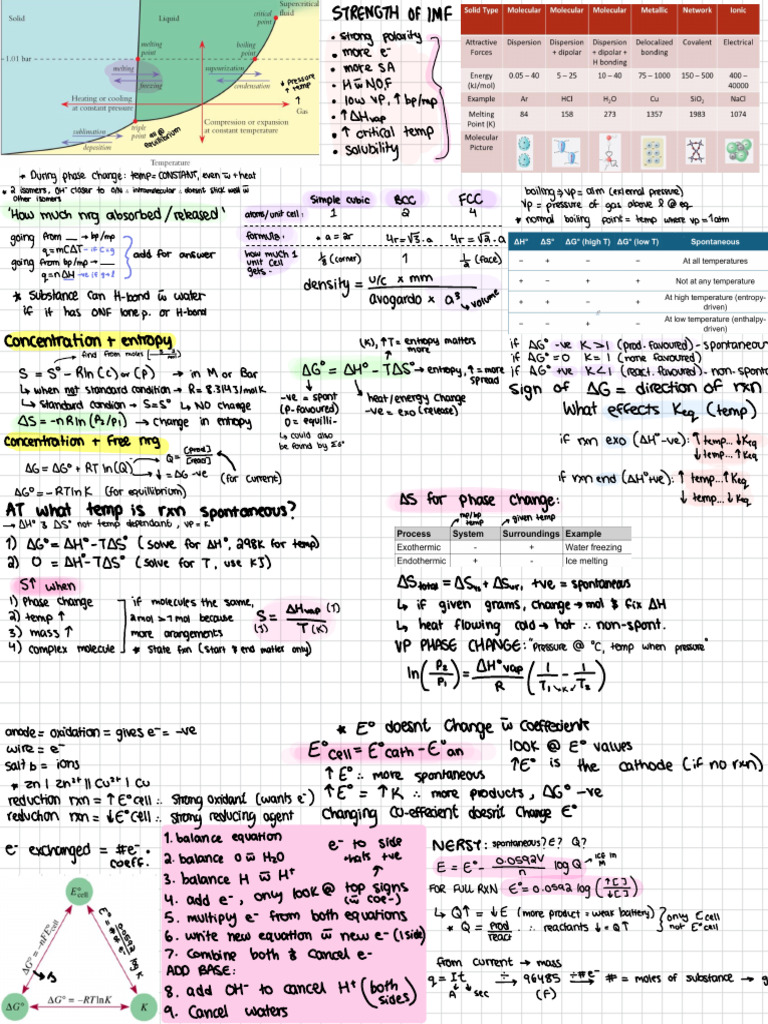 Solid
Liquid
Supercritical fluid
critical point
melting point
boiling point
1.01 bar
melting
freezing
vaporization
condensation
* pressure + temp
↑
Gas
Heating or cooling at constant pressure
Compression or expansion at constant temperature
sublimation
deposition
triple point
all @ equilibrium
Temperature
STRENGTH OF IMF
• strong polarity
• more e-
• more SA
• H w̄ NOF
• low VP, ↑ bp/mp
• ↑ ΔHvap
• ↑ critical temp
• solubility
Solid Type Molecular Molecular Molecular Metallic Network Ionic
Attractive Forces Dispersion Dispersion + dipolar Dispersion + dipolar + H bonding Delocalized bonding Covalent Electrical
Energy (kJ/mol) 0.05 – 40 5 – 25 10 – 40 75 – 1000 150 – 500 400 – 40000
Example Ar HCl H₂O Cu SiO₂ NaCl
Melting Point (K) 84 158 273 1357 1983 1074
Molecular Picture
* During phase change: temp = CONSTANT, even w̄ + heat
* 2 isomers, OH- closer to O/N = intramolecular ∴ doesnt stick well w̄ other isomers
'How much nrg absorbed/released'
going from __ → bp/mp
q = mCΔT - if C → g
going from bp/mp → __
q = nΔH -ve if g → l
add for answer
* Substance can H-bond w̄ water
if it has ONF lone p. or H-bond
Simple cubic BCC FCC
atoms/unit cell: 1 2 4
formula: • a = 2r 4r = √3 · a 4r = √2 · a
how much 1 unit cell gets: 1/8 (corner) 1 1/2 (face)
density = u/c × mm / avogardo × a³ → volume
boiling → vp = atm (external pressure)
Vp = pressure of gas above l @ eq
* normal boiling point = temp where vp = 1 atm
ΔH° ΔS° ΔG° (high T) ΔG° (low T) Spontaneous
− + − − At all temperatures
+ − + + Not at any temperature
+ + − + At high temperature (entropy-driven)
− − + − At low temperature (enthalpy-driven)
Concentration + entropy
find from moles
S = S° - Rln(c) or (P) → in M or Bar
↳ when not standard condition → R = 8.3145/molK
↳ Standard condion → S = S° ↳ NO change
ΔS = -nRln(P₂/P₁) → change in entropy
(K), ↑T = entropy matters more
ΔG° = ΔH° - TΔS° → entropy, ↑ = more spread
-ve = spont (P-favoured)
0 = equilli-
↳ could also be found by ΣG°
heat/energy change
-ve = exo (release)
if ΔG° -ve K > 1 (prod. favoured) - spontaneous
if ΔG° = 0 K = 1 (none favoured)
if ΔG° +ve K < 1 (react. favoured) - non-spont
sign of ΔG = direction of rxn
What effects Keq (temp)
if rxn exo (ΔH° -ve): ↑ temp... ↓ Keq
↓ temp... ↑ Keq
if rxn end (ΔH° +ve): ↑ temp... ↑ Keq
↓ temp... ↓ Keq
Concentration + Free nrg
ΔG = ΔG° + RT ln(Q)
Q = [prod]/[react]
↓ = ΔG -ve (for current)
ΔG° = -RTlnK (for equillibrium)
AT what temp is rxn spontaneous?
→ ΔH° & ΔS° not temp dependant, vp = K
1) ΔG° = ΔH° - TΔS° (solve for ΔH°, 298K for temp)
2) 0 = ΔH° - TΔS° (solve for T, use KJ)
S↑ when
1) Phase change
2) temp ↑
3) mass ↑
4) complex molecule
if molecules the same,
2mol > 1 mol because
more arrangements
* State fxn (start & end matter only)
S = ΔHvap (J) / T (K)
(J)
ΔS for phase change:
mp/bp temp
given temp
Process System Surroundings Example
Exothermic - + Water freezing
Endothermic + - Ice melting
ΔStotal = ΔSsys + ΔSsur, +ve = spontaneous
↳ if given grams, change → mol & fix ΔH
↳ heat flowing cold → hot ∴ non-spont.
VP PHASE CHANGE: "Pressure @ °C, temp when pressure"
ln(P₂/P₁) = ΔH°vap/R (1/T₁ - 1/T₂)
K
anode = oxidation = gives e- = -ve
wire = e-
salt b = ions
* Zn | Zn²⁺ || Cu²⁺ | Cu
reduction rxn = ↑E°cell ∴ Strong oxidant (wants e-)
reduction rxn = ↓E°cell ∴ strong reducing agent
e- exchanged = #e- · coeff.
* E° doesnt change w̄ coefficients
E°cell = E°cath - E°an
look @ E° values
↑E° is the cathode (if no rxn)
↑ E° ∴ more spontaneous
↑ E° = ↑ K ∴ more products, ΔG° -ve
Changing co-effecient doesnt Change E°
E°cell
ΔG° = -nFE°cell
E° = 0.0592/#e- log K
ΔG°
ΔG° = -RT ln K
K
1. balance equation
2. balance O w̄ H₂O
3. balance H w̄ H⁺
4. add e-, only look @ top signs (w̄ coe-)
5. multiply e- from both equations
6. write new equation w̄ new e- (1 side)
7. Combine both & cancel e-
ADD BASE:
8. add OH- to cancel H⁺ (both sides)
9. Cancel waters
e- to side thats +ve
NERST: spontaneous? E? Q?
E = E° - 0.0592V/n log Q → ice in M
FOR FULL RXN E° = 0.0592 log (↑[ ]/↓[ ])
↳ Q↑ = ↓E (more product = weak battery)
* Q = prod/react ∴ reactants ↓ = Q↑
only Ecell not E°cell
from current → mass
q = It ÷ → 96485 (F) ÷#e- → # = moles of substance → g
A sec